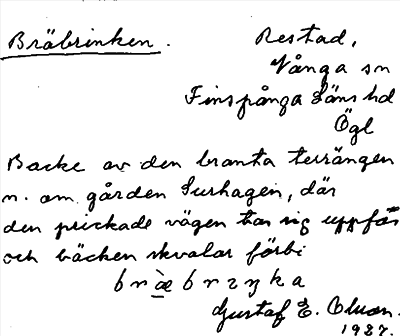 Bräbrinken.
Restad,
Vånga sn
Finspånga läns hd
Ögl
Backe av den branta terrängen
n. om gården Surhagen, där
den prickade vägen tar sig uppför
och bäcken skvalar förbi
Gustaf E. Olsson.
1927.